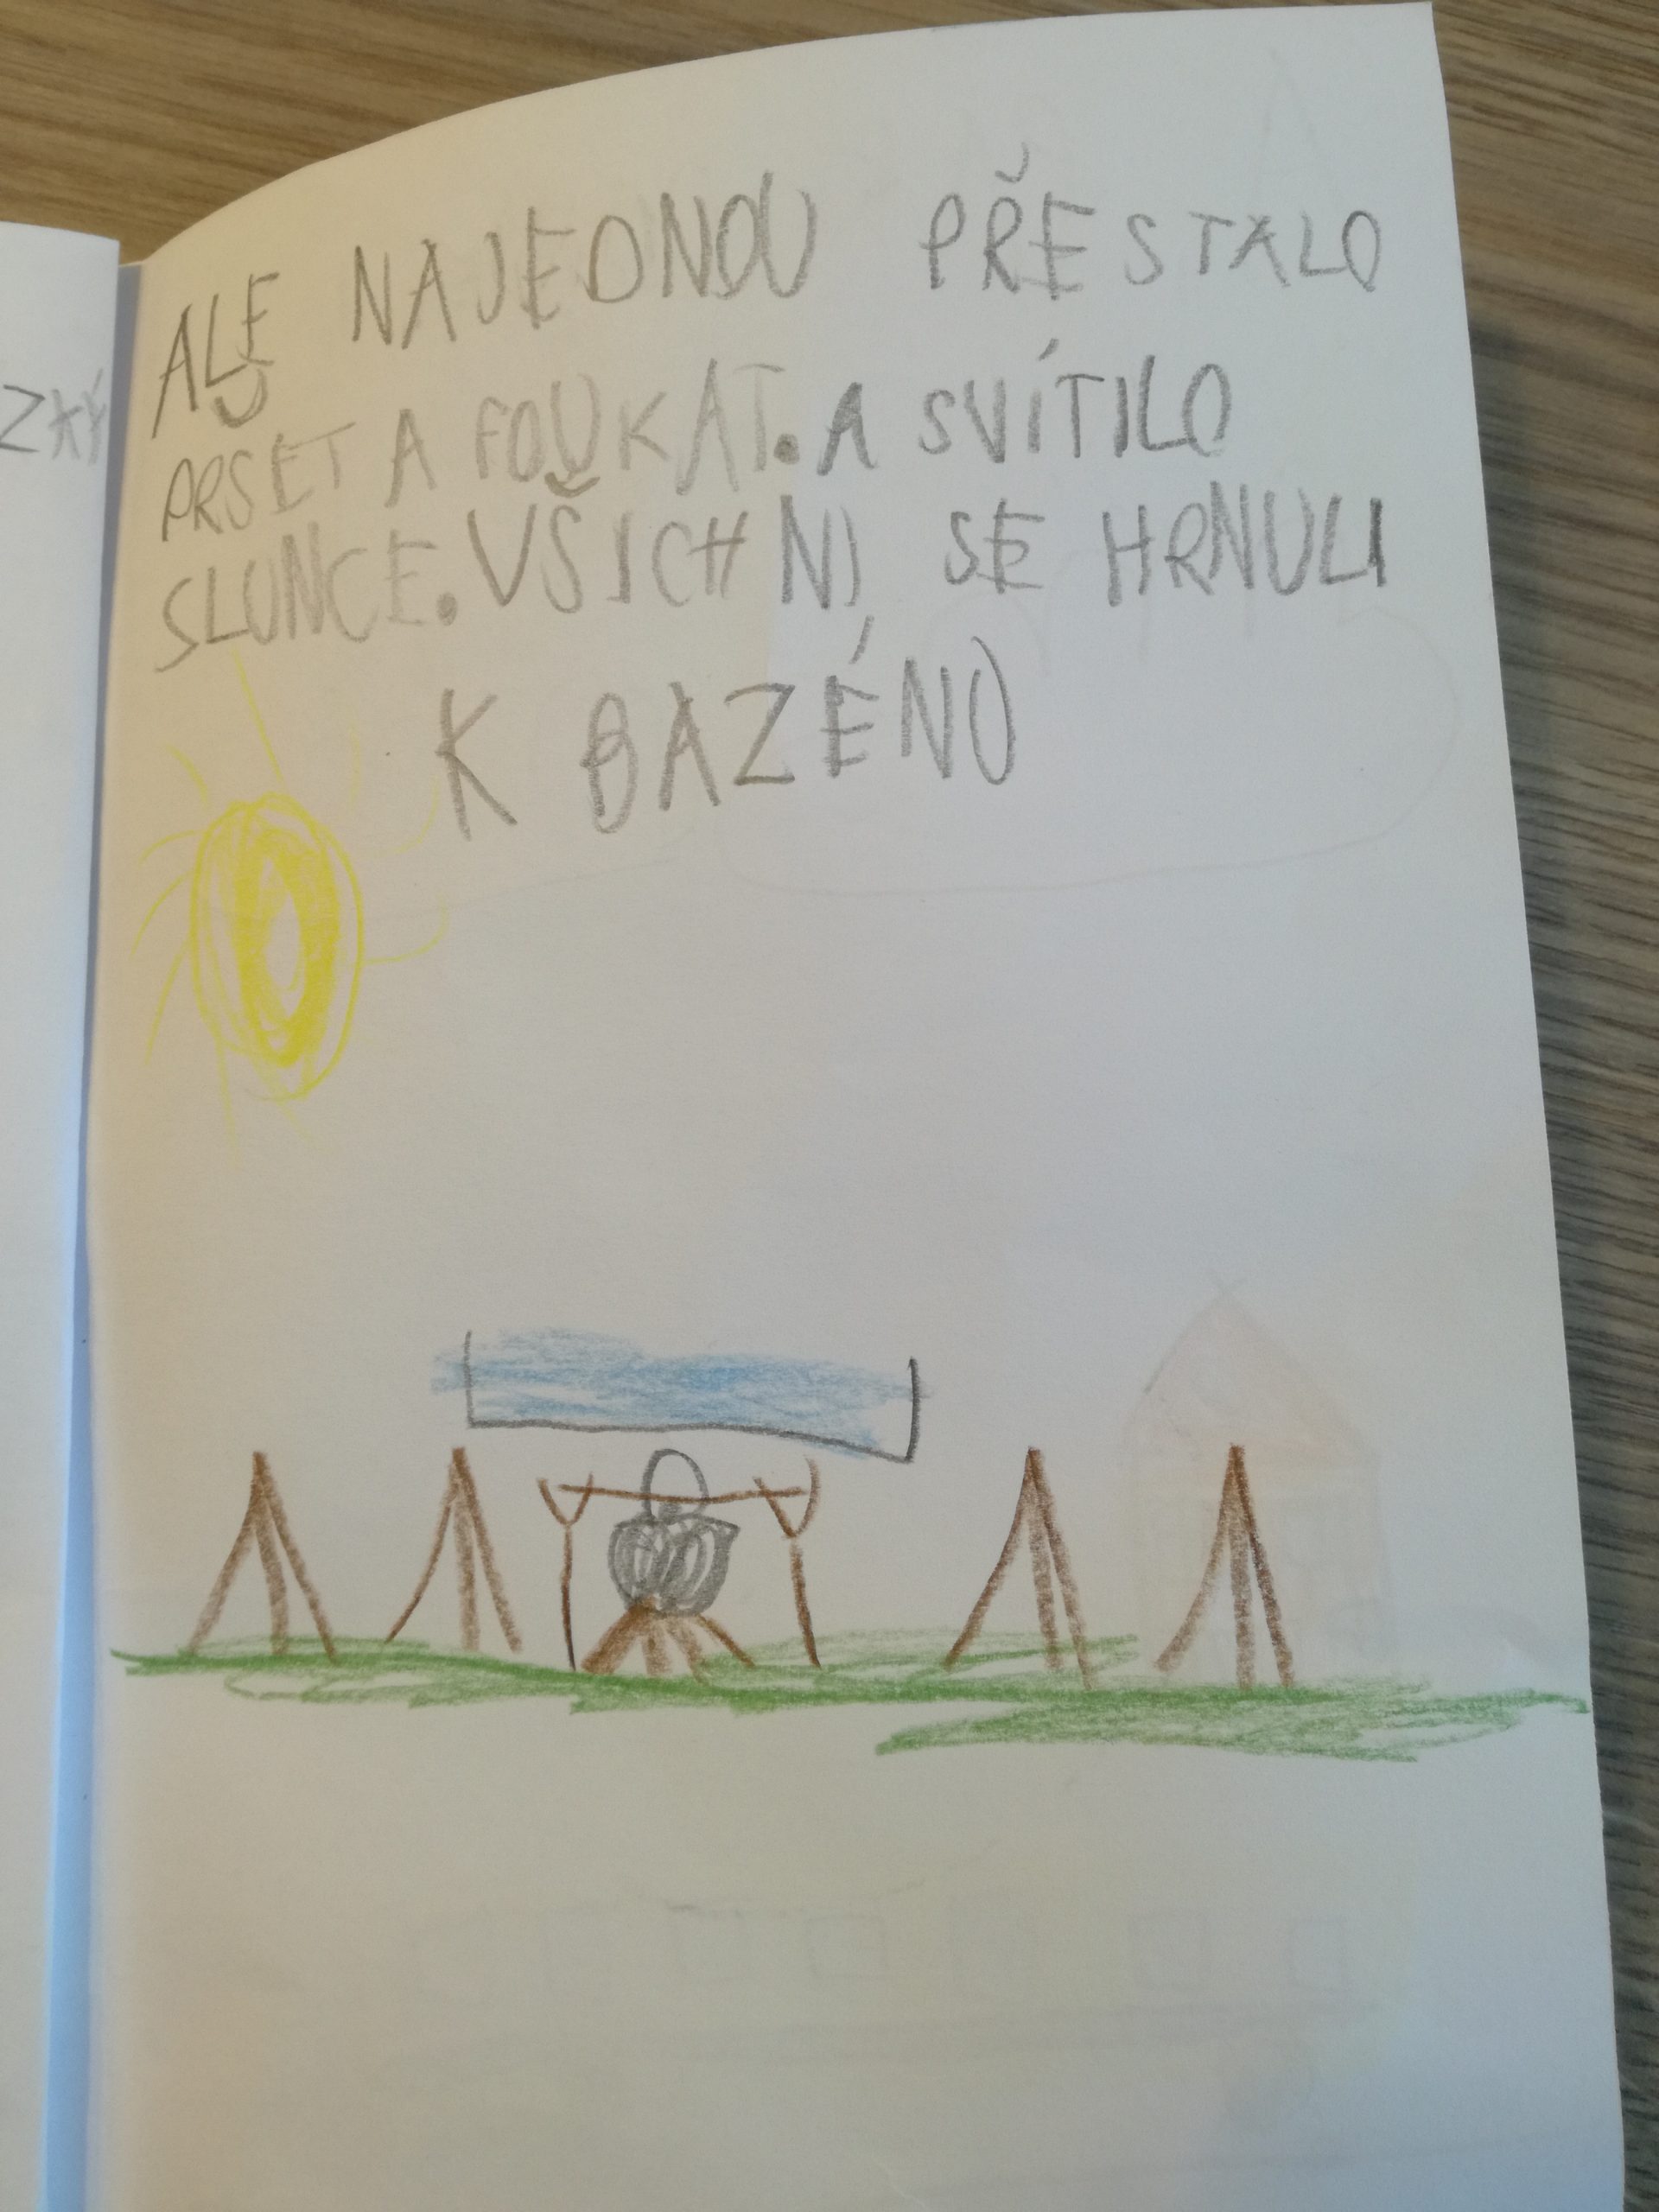 ALE NAJEDNOU PŘESTALO
PRŠET A FOUKAT. A SVÍTILO
SLUNCE. VŠICHNI SE HRNULI
K BAZÉNU